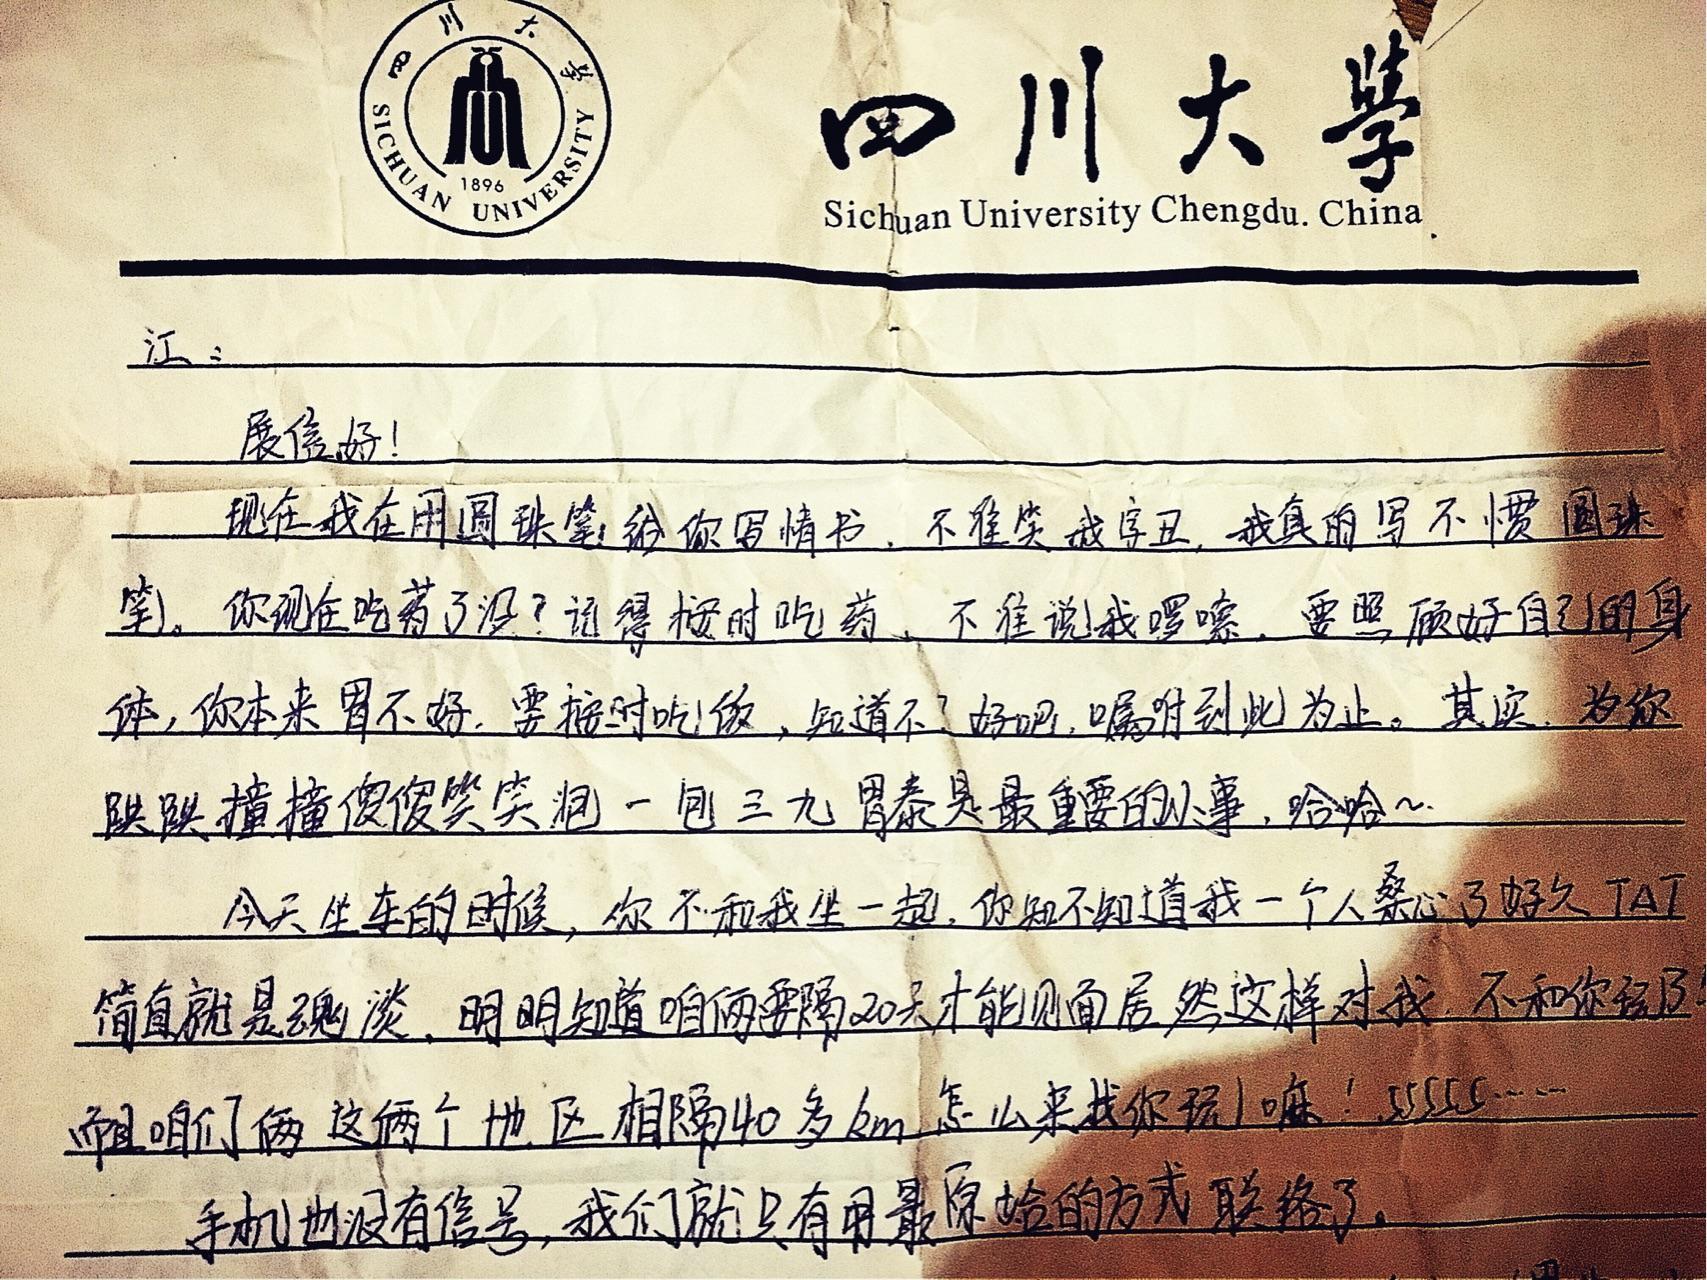 四川大學
SICHUAN UNIVERSITY
1896
四川大學
Sichuan University Chengdu. China
江:
展信好!
现在我在用圆珠笔给你写情书,不准笑我字丑,我真的写不惯圆珠
笔。你现在吃药了没?记得按时吃药,不准说我啰嗦,要照顾好自己的身
体,你本来胃不好,要按时吃饭,知道不?好吧,嘱咐到此为止。其实,为你
跌跌撞撞傻傻笑笑泡一包三九胃泰是最重要的小事,哈哈~
今天坐车的时候,你不和我坐一起,你知不知道我一个人桑心了好久TAT
简直就是魂淡,明明知道咱俩要隔20天才能见面居然这样对我,不和你玩了
而且咱们俩这俩个地区相隔40多km怎么来找你玩嘛!55555……
手机也没有信号,我们就只有用最原始的方式联络了。